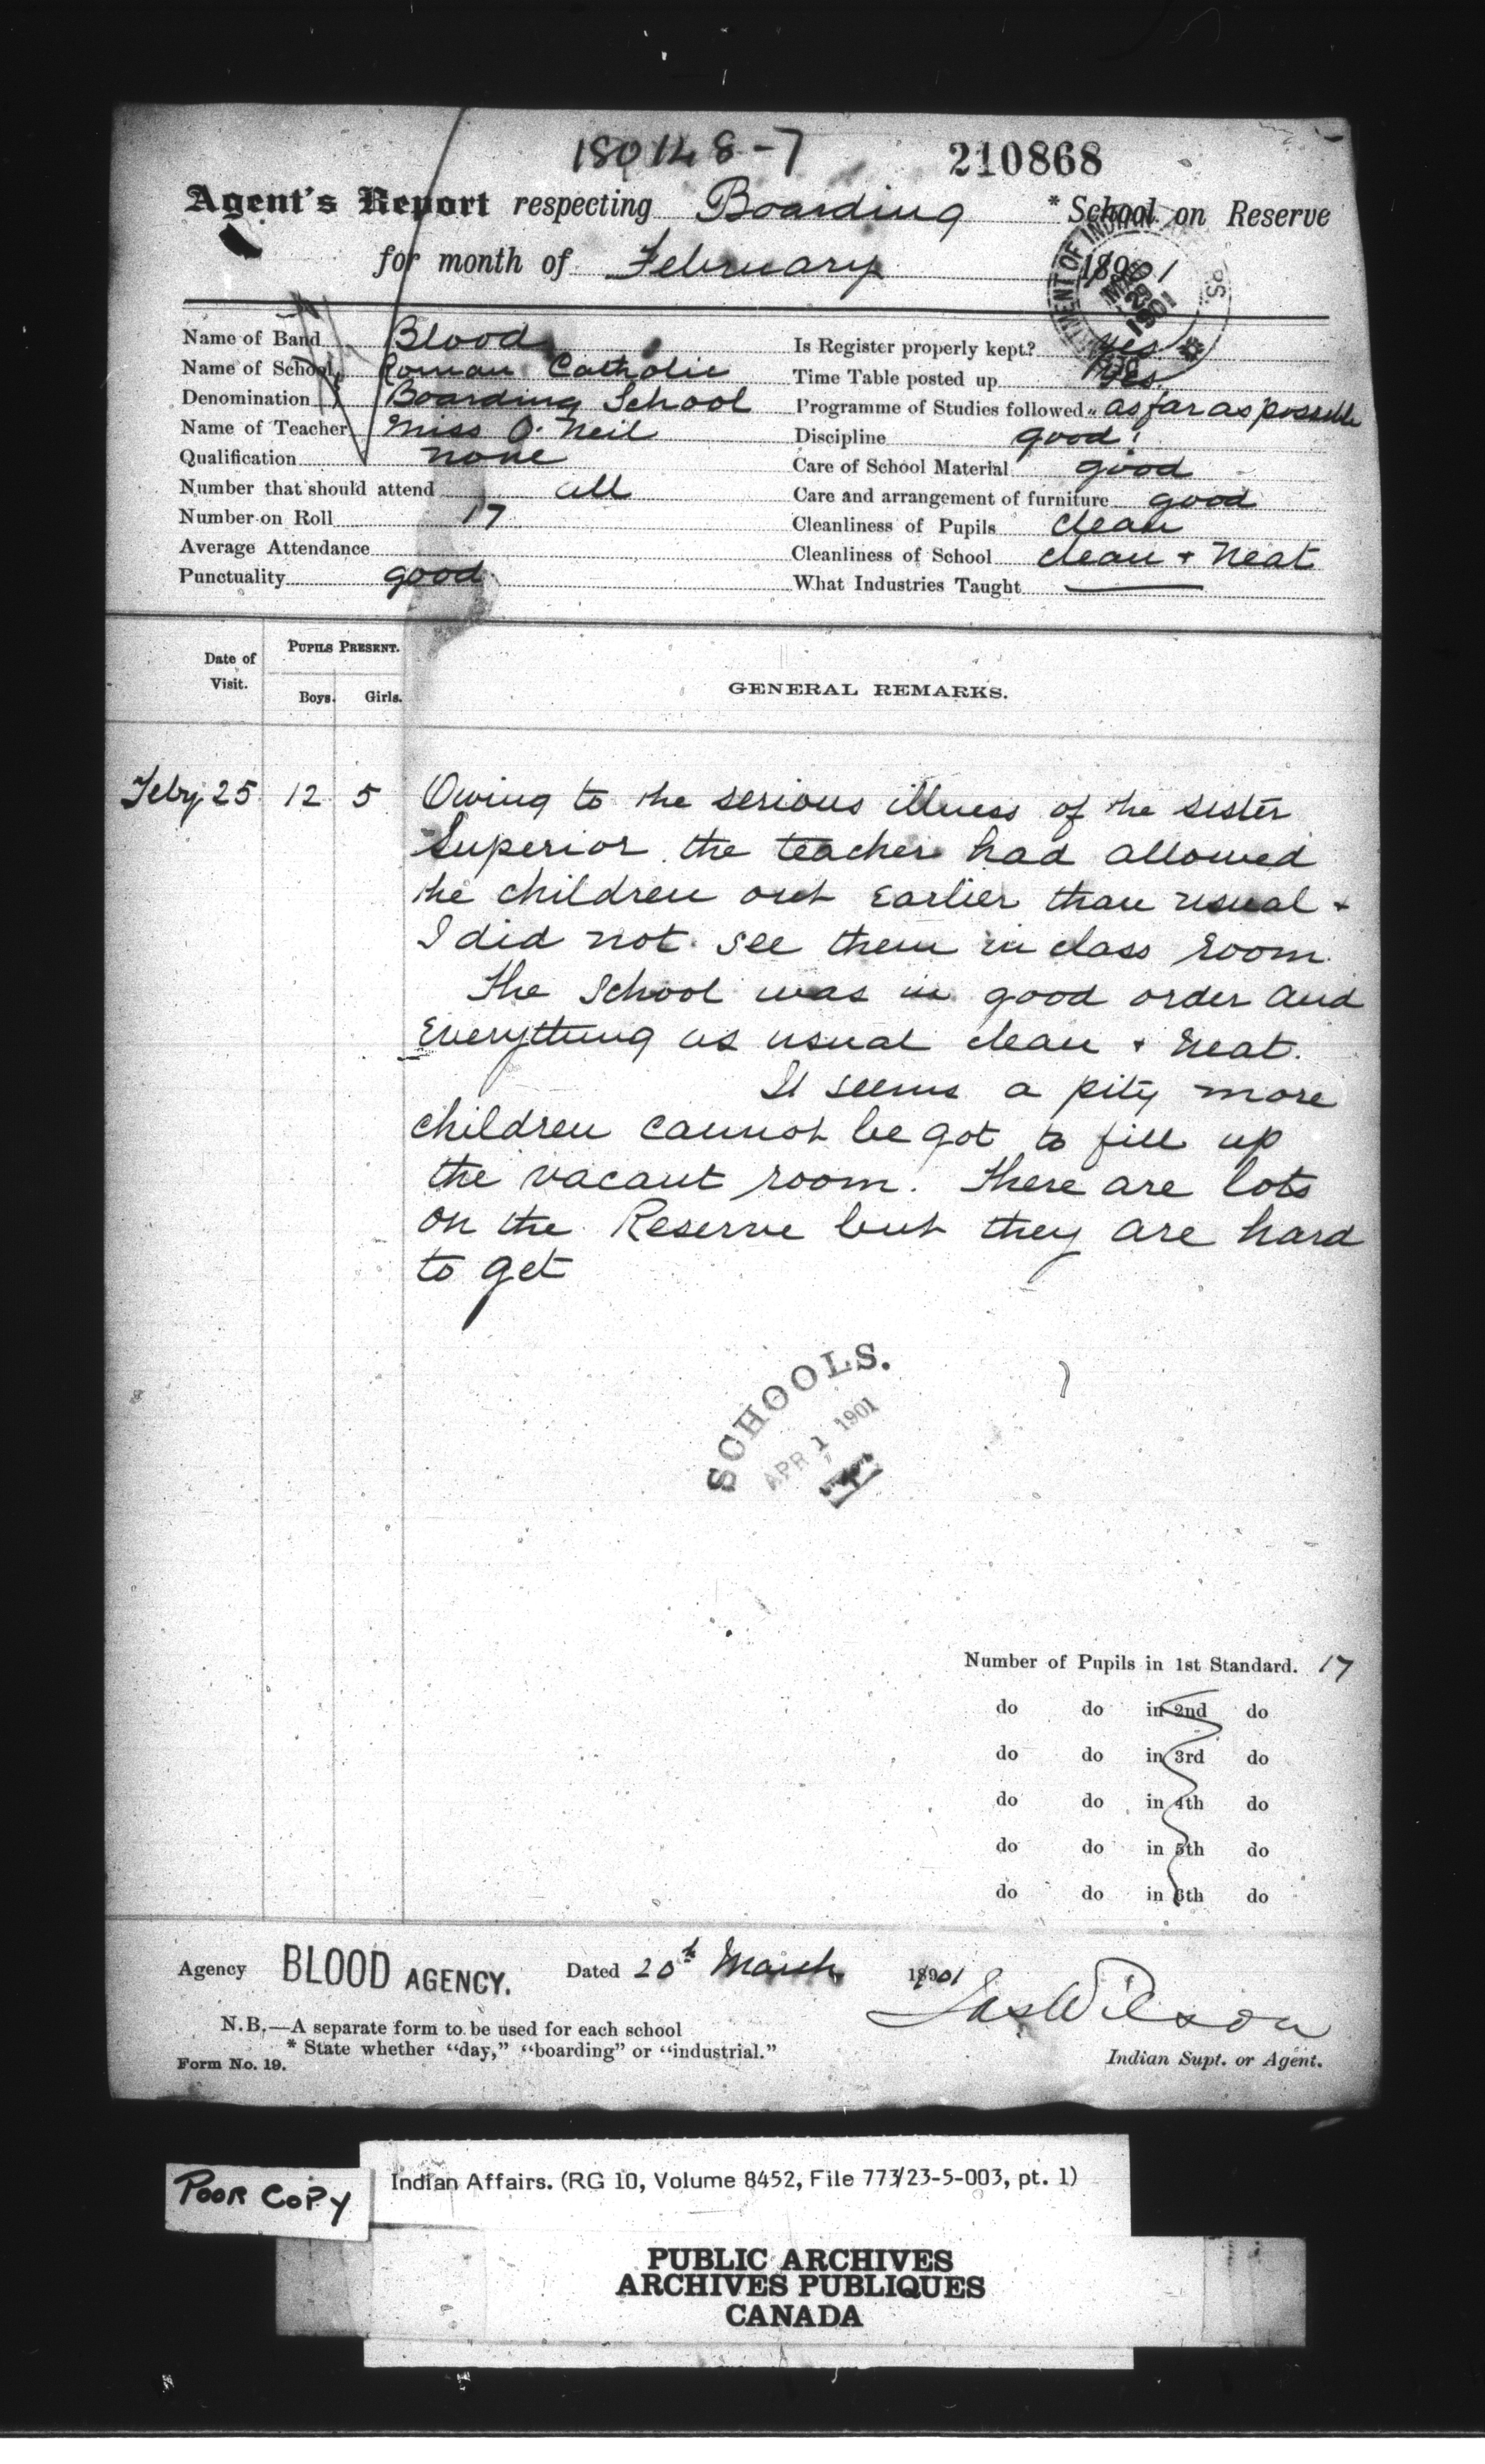 180148-7
210868
Agent's Report respecting Boarding * School on Reserve
for month of February 1901
Name of Band Blood
Name of School Roman Catholic
Denomination Boarding School
Name of Teacher Miss O'Neil
Qualification none
Number that should attend all
Number on Roll 17
Average Attendance
Punctuality good
Is Register properly kept? Yes
Time Table posted up Yes
Programme of Studies followed " as far as possible
Discipline good
Care of School Material good
Care and arrangement of furniture good
Cleanliness of Pupils clean
Cleanliness of School clean + neat
What Industries Taught —
Date of Visit.
PUPILS PRESENT.
Boys. Girls.
GENERAL REMARKS.
Feby 25 12 5 Owing to the serious illness of the sister
Superior the teacher had allowed
the children out earlier than usual +
I did not see them in class room.
The School was in good order and
Everything as usual clean + neat.
It seems a pity more
children cannot be got to fill up
the vacant room. There are lots
on the Reserve but they are hard
to get
SCHOOLS.
APR 1 1901
Number of Pupils in 1st Standard. 17
do do in 2nd do
do do in 3rd do
do do in 4th do
do do in 5th do
do do in 6th do
Agency BLOOD AGENCY. Dated 20th March 1901
Jas Wilson
N.B.—A separate form to be used for each school
* State whether "day," "boarding" or "industrial."
Form No. 19.
Indian Supt. or Agent.
POOR COPY
Indian Affairs. (RG 10, Volume 8452, File 773/23-5-003, pt. 1)
PUBLIC ARCHIVES
ARCHIVES PUBLIQUES
CANADA